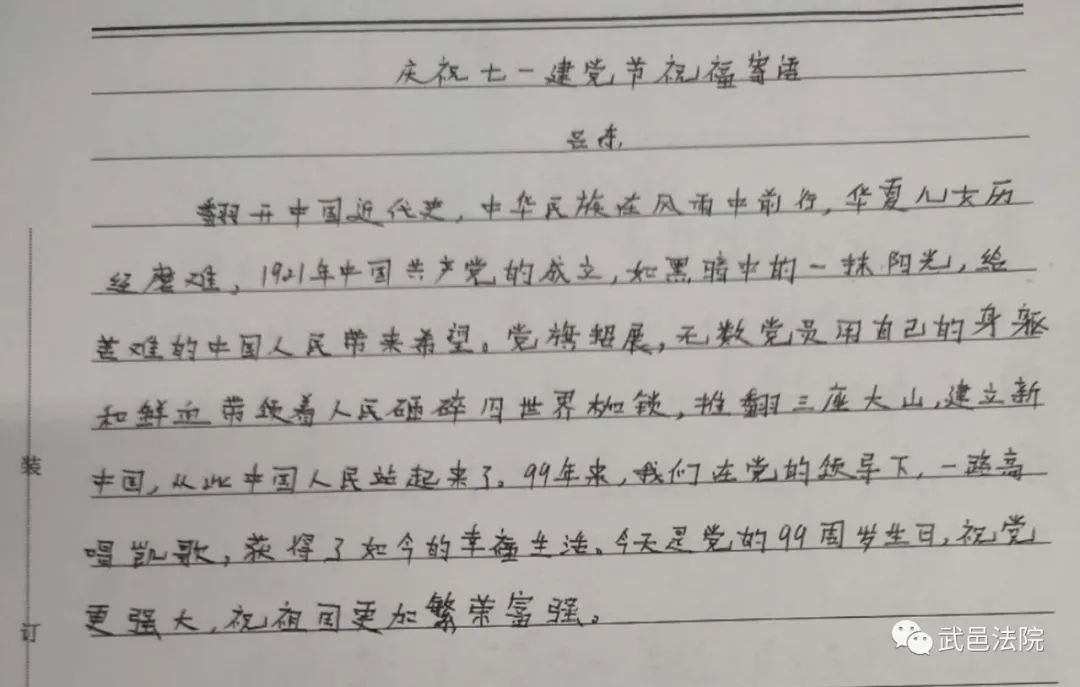 庆祝七一建党节祝福寄语
吕东
翻开中国近代史，中华民族在风雨中前行，华夏儿女历
经磨难，1921年中国共产党的成立，如黑暗中的一抹阳光，给
苦难的中国人民带来希望。党旗招展，无数党员用自己的身躯
和鲜血带领着人民砸碎旧世界枷锁，推翻三座大山，建立新
中国，从此中国人民站起来了。99年来，我们在党的领导下，一路高
唱凯歌，获得了如今的幸福生活。今天是党的99周岁生日，祝党
更强大，祝祖国更加繁荣富强。
装
订
武邑法院